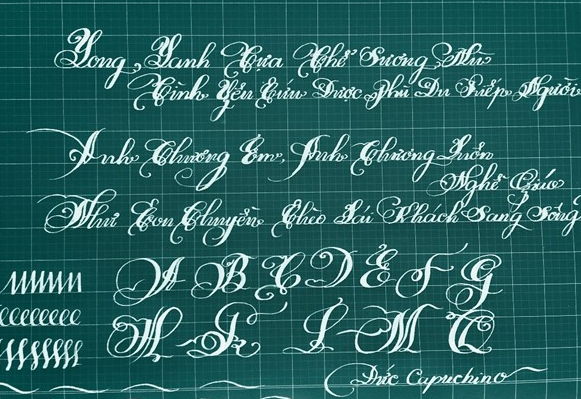 Tựa Thể Sương Mù
Tình Yêu Cứu Được Phù Du Kiếp Người
Anh Thương Em, Anh Thương Luôn
Nghề Giáo
Như Con Thuyền Chèo Lái Khách Sang Sông
A B C D E F G
H - K L - M T
Đức Capuchino